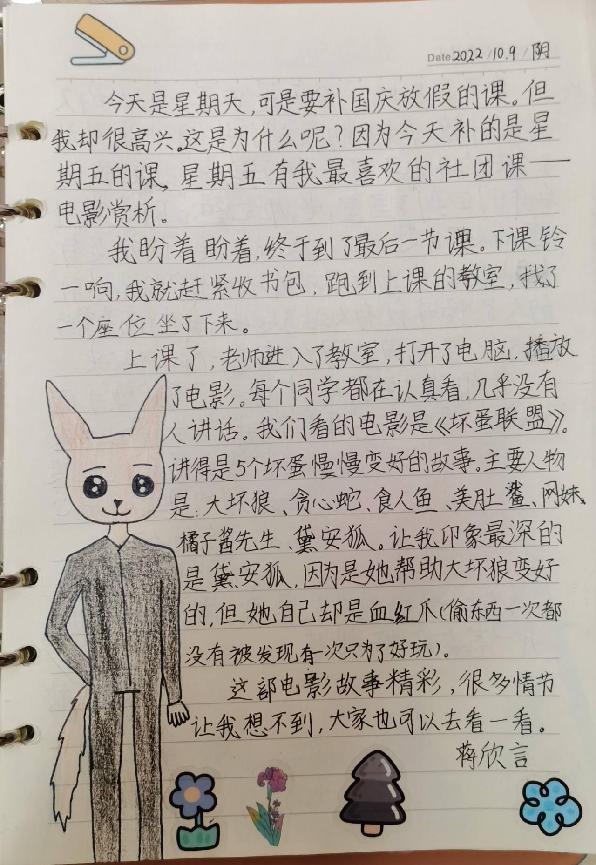 Date 2022/10.9/阴
今天是星期天,可是要补国庆放假的课。但
我却很高兴。这是为什么呢?因为今天补的是星
期五的课,星期五有我最喜欢的社团课——
电影赏析。
我盼着盼着,终于到了最后一节课。下课铃
一响,我就赶紧收书包,跑到上课的教室,找了
一个座位坐了下来。
上课了,老师进入了教室,打开了电脑,播放
了电影。每个同学都在认真看,几乎没有
人讲话。我们看的电影是《坏蛋联盟》。
讲得是5个坏蛋慢慢变好的故事。主要人物
是:大坏狼、贪心蛇、食人鱼、美肚鲨、网妹、
橘子酱先生、黛安狐。让我印象最深的
是黛安狐,因为是她帮助大坏狼变好
的,但她自己却是血红爪(偷东西一次都
没有被发现有一次只为了好玩)。
这部电影故事精彩,很多情节
让我想不到,大家也可以去看一看。
蒋欣言